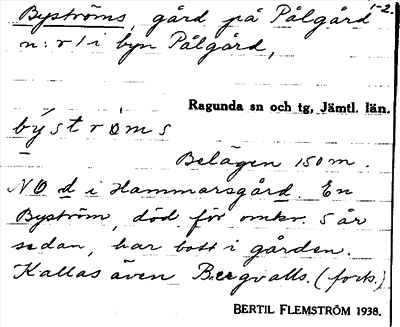 1-2.
Byströms, gård på Pålgård
n:r 1 i byn Pålgård,
Ragunda sn och tg, Jämtl. län.
býströms
Belägen 150 m.
NO d i Hammarsgård. En
Byström, död för omkr. 5 år
sedan, har bott i gården.
Kallas även Bergvalls. (forts.)
BERTIL FLEMSTRÖM 1938.